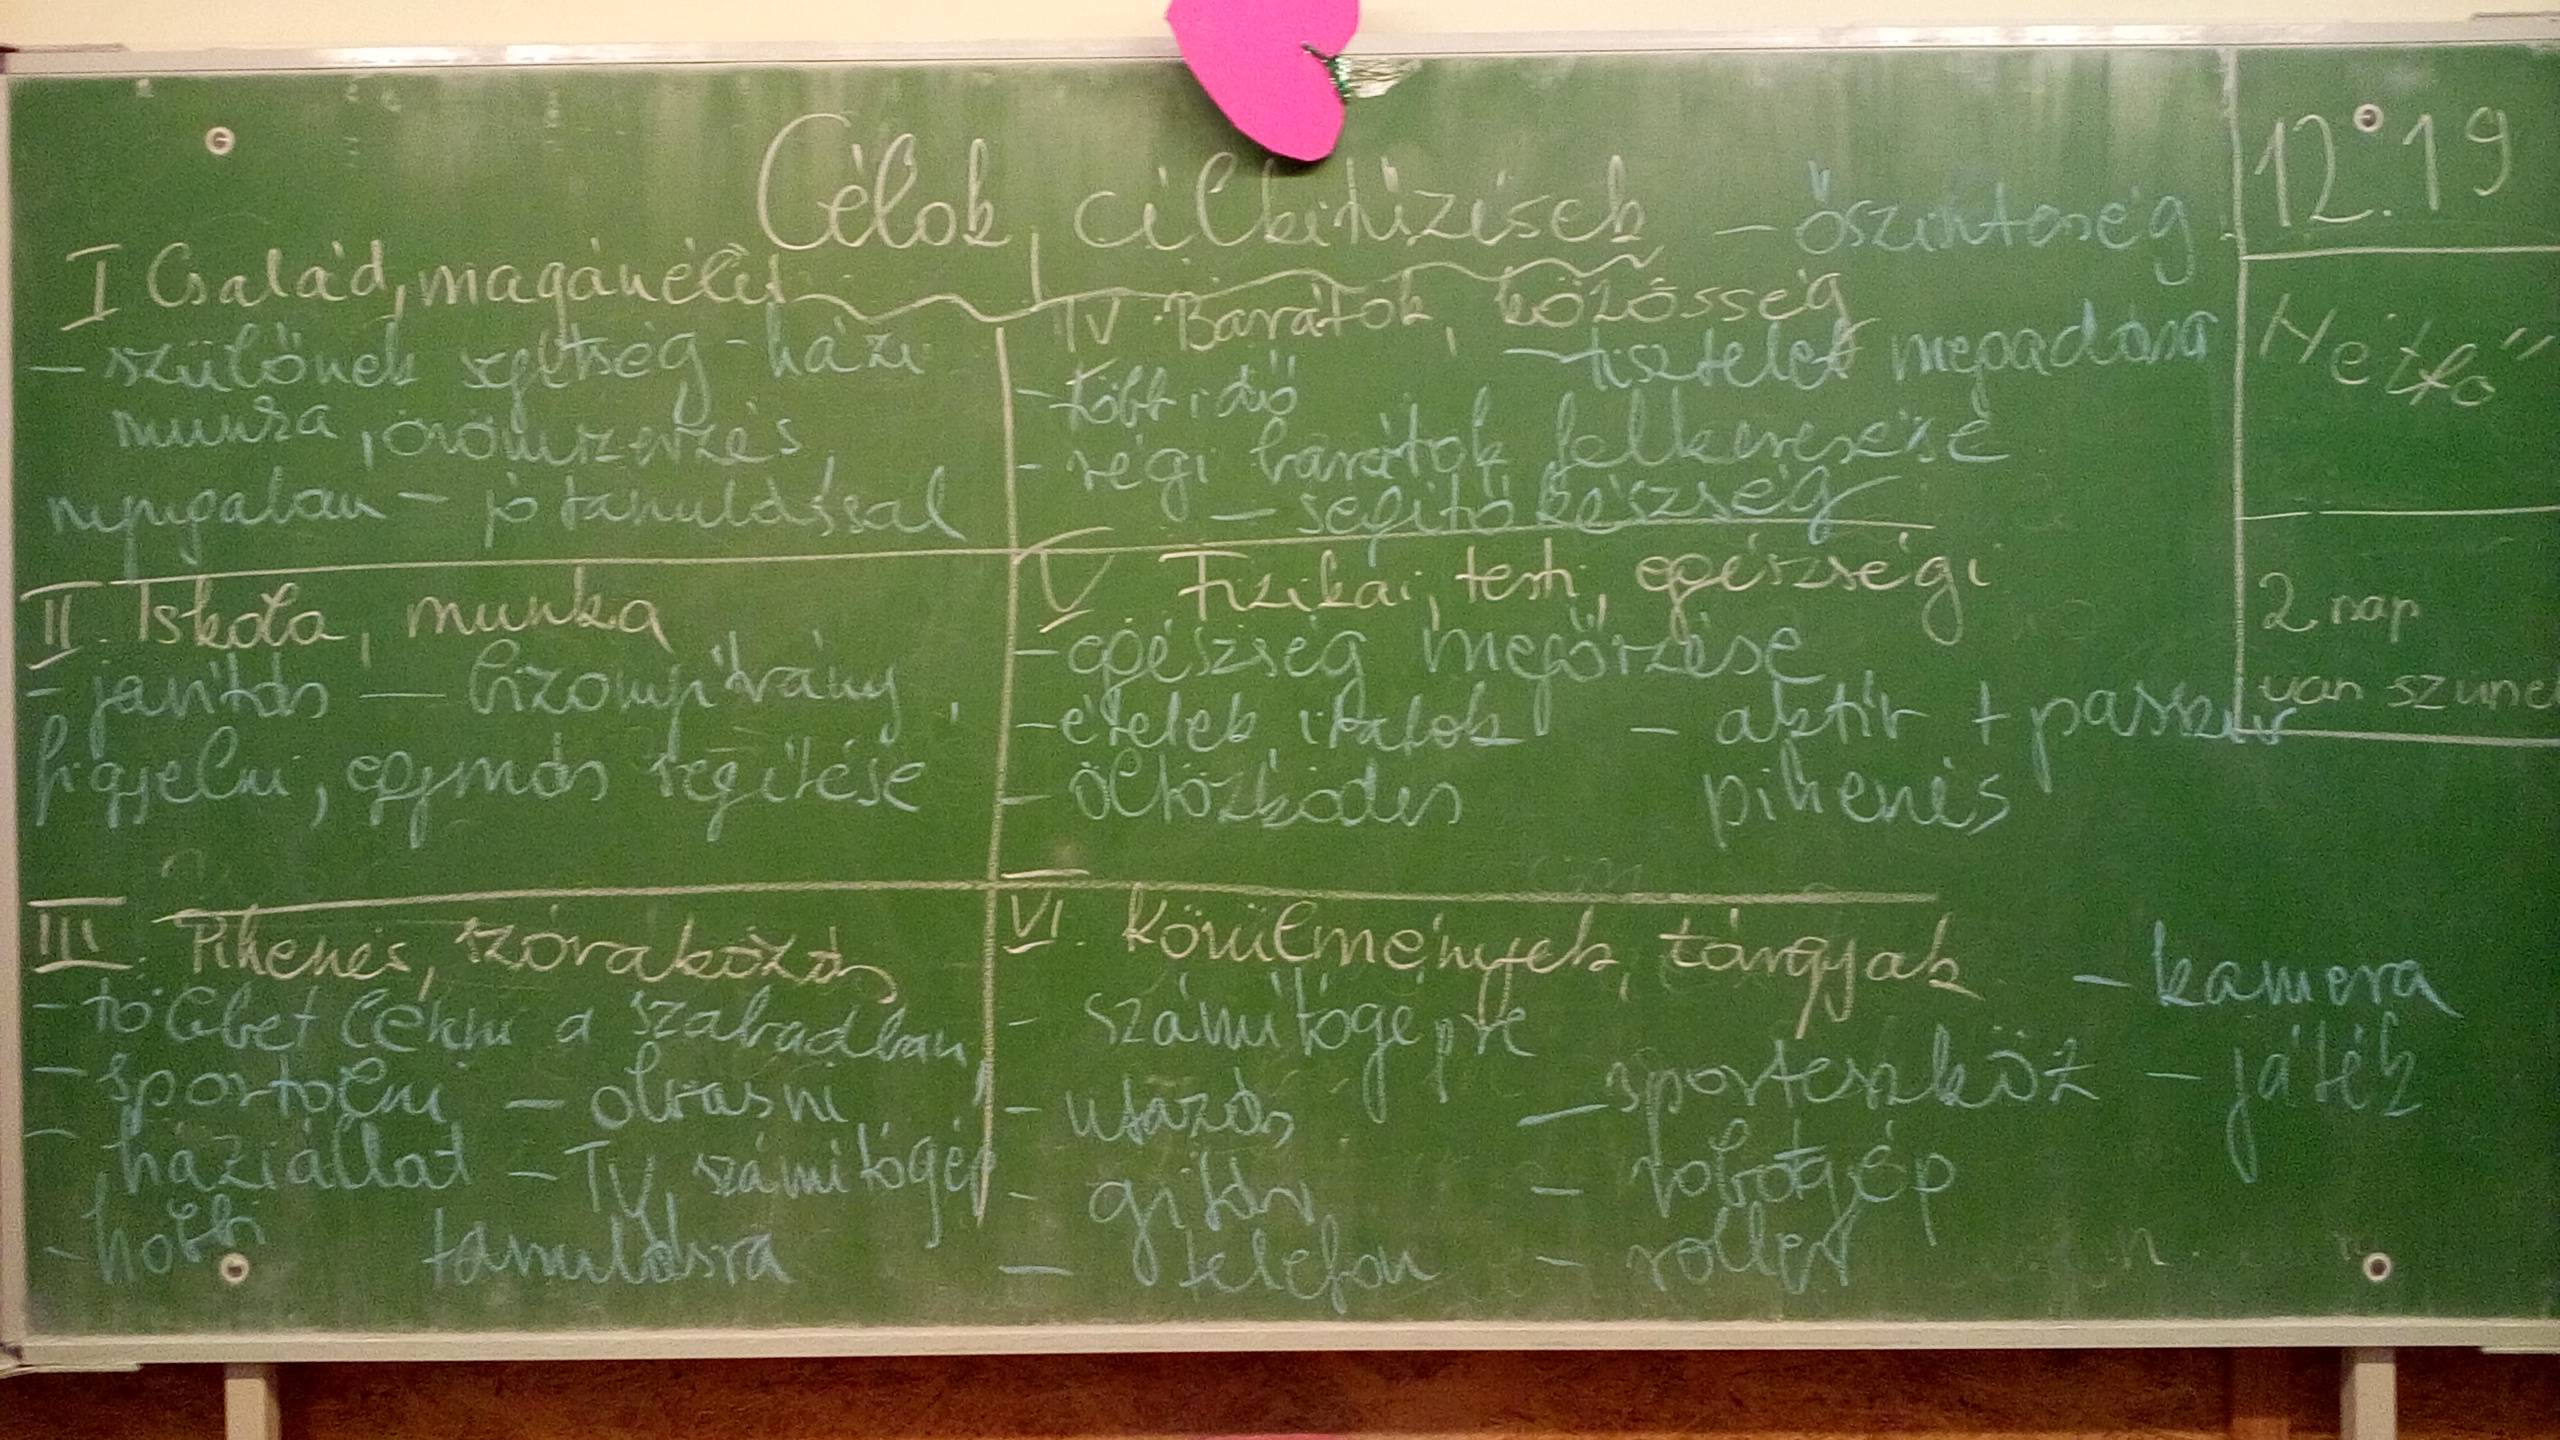 Célok, célkitűzések
I Család, magánélet
- szülőnek segítség - házi
munka, örömszerzés
nyugalom - jó tanulással
II. Iskola, munka
- javítás — bizonyítvány,
figyelni, egymás segítése
III. Pihenés, szórakozás
- többet lenni a szabadban,
- sportolni - olvasni
- háziállat - TV, számítógép
- hobbi tanulásra
IV. Barátok, közösség
- őszinteség
- több idő - tisztelet megadása
- régi barátok felkeresése
- segítőkészség
V. Fizikai, testi, egészségi
- egészség megőrzése
- ételek italok - aktív + passzív
- öltözködés pihenés
VI. Körülmények, tárgyak - kamera
- számítógépre
- utazás - sporteszköz - játék
- gitár - robotgép
- telefon - roller
12.19
Hétfő
2 nap
van szünet